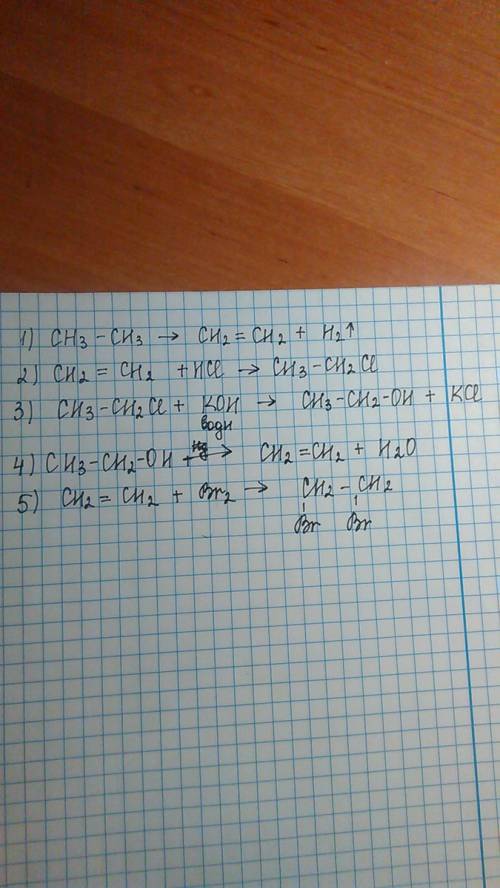 1) CH3 – CH3 → CH2 = CH2 + H2↑
2) CH2 = CH2 + HCl → CH3 – CH2Cl
3) CH3 – CH2Cl + KOH → CH3 – CH2 – OH + KCl
водн
4) CH3 – CH2 – OH → CH2 = CH2 + H2O
5) CH2 = CH2 + Br2 → CH2 – CH2
Br Br